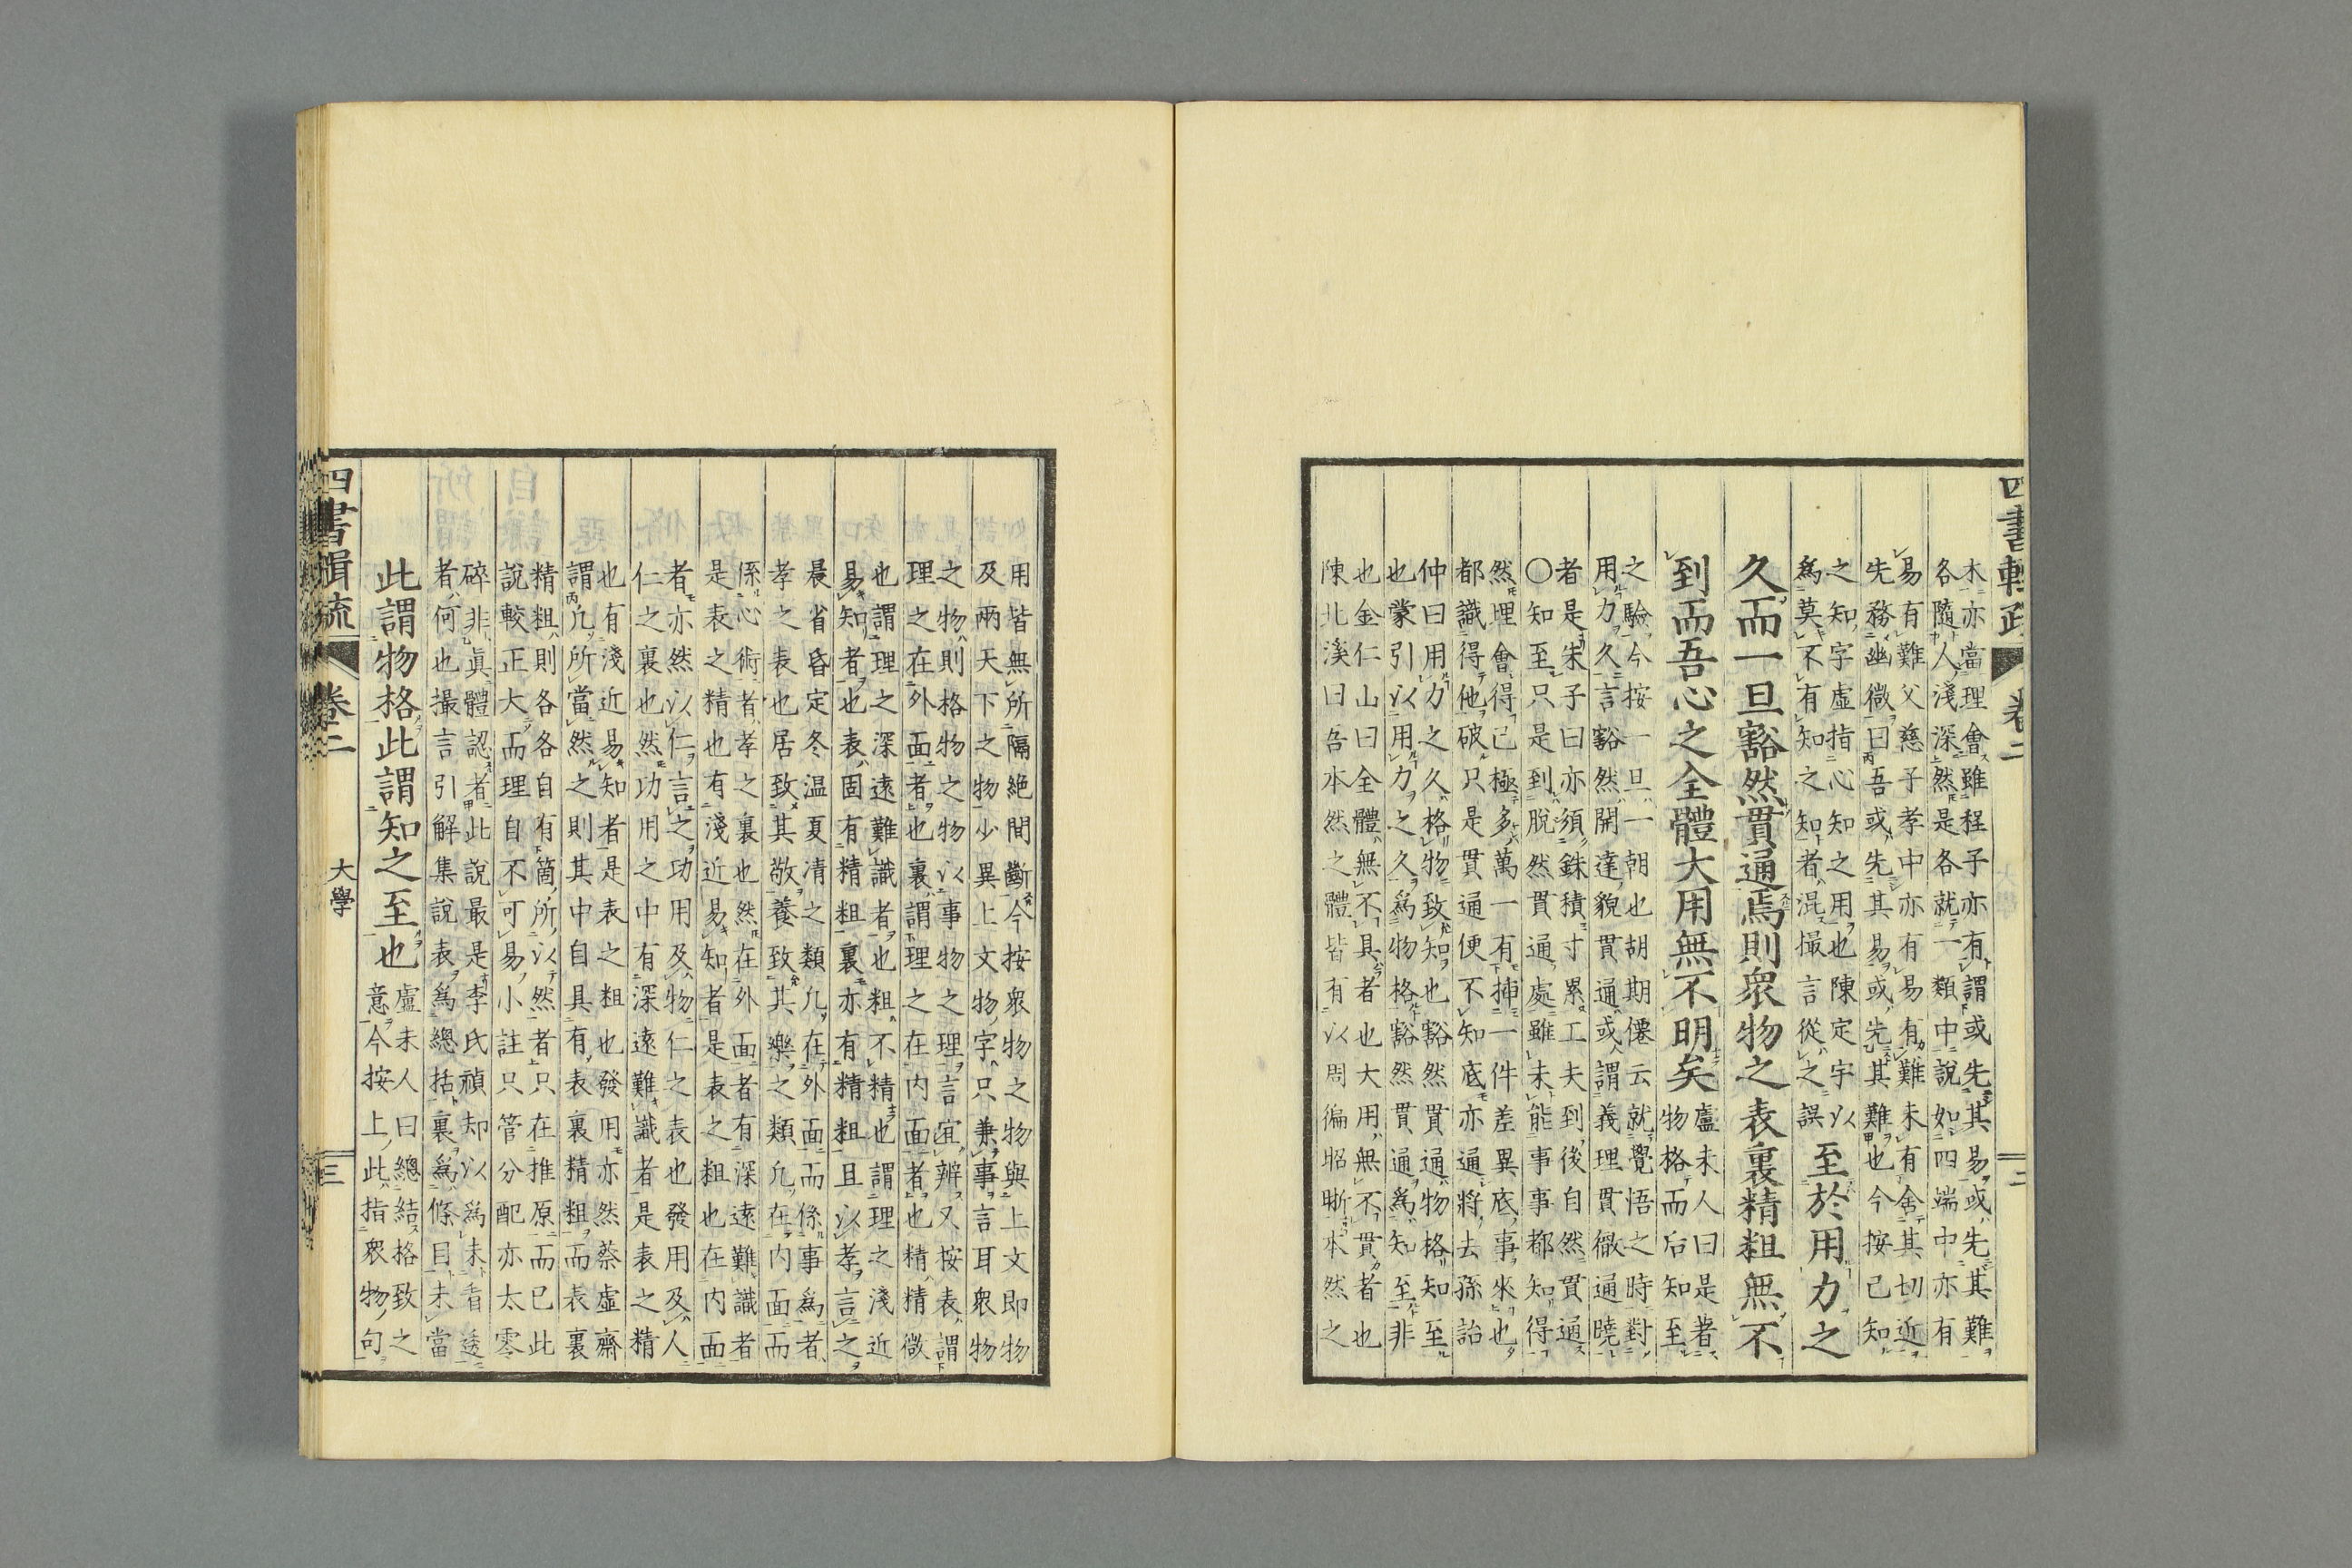 四書輯疏
卷二
二
木亦當理會雖程子亦有謂或先其易或先其難
各隨人淺深然是各就一類中說如四端中亦有
易有難父慈子孝中亦有易有難未有舍其切近
先務幽微曰吾或先其易或先其難也今按已知
之知字虛指心知之用也陳定宇以
爲莫不有知之知者混撮言從之誤
至於用力之
久而一旦豁然貫通焉則衆物之表裏精粗無不
到而吾心之全體大用無不明矣
盧未人曰是著
物格而后知至
之驗今按一旦一朝也胡期僊云就覺悟之時對
用力久言豁然開達貌貫通或謂義理貫徹通曉
者是朱子曰亦須銖積寸累工夫到後自然貫通
○知至只是到脫然貫通處雖未能事事都知得
然理會得已極多萬一有揷一件差異底事來也
都識得他破只是貫通便不知底亦通將去孫詒
仲曰用力之久格物致知也豁然貫通物格知至
也蒙引以用力之久爲物格豁然貫通爲知至非
也金仁山曰全體無不具者也大用無不貫者也
陳北溪曰吾本然之體皆有以周徧昭晰本然之
用皆無所隔絶間斷今按衆物之物與上文即物
及兩天下之物少異上文物字只兼事言耳衆物
之物則格物之物以事物之理言宜辨又按表謂
理之在外面者也裏謂理之在内面者也精精微
也謂理之深遠難識者也粗不精也謂理之淺近
易知者也表固有精粗裏亦有精粗且以孝言之
晨省昏定冬温夏凊之類凡在外面而係事爲者
孝之表也居致其敬養致其樂之類凡在内面而
係心術者孝之裏也然在外面者有深遠難識者
是表之精也有淺近易知者是表之粗也在内面
者亦然以仁言之功用及物仁之表也發用及人
仁之裏也然功用之中有深遠難識者是表之精
也有淺近易知者是表之粗也發用亦然蔡虛齋
謂凡所當然之則其中自具有表裏精粗而表裏
精粗則各各自有箇所以然者只在推原而已此
說較正大而理自不可易小註只管分配亦太零
碎非眞體認者此說最是李氏禎却以爲未看透
者何也撮言引解集說表爲總括裏爲條目未當
此謂物格此謂知之至也
盧未人曰總結格致之
意今按上此指衆物句
四書輯疏
卷二
大學
三